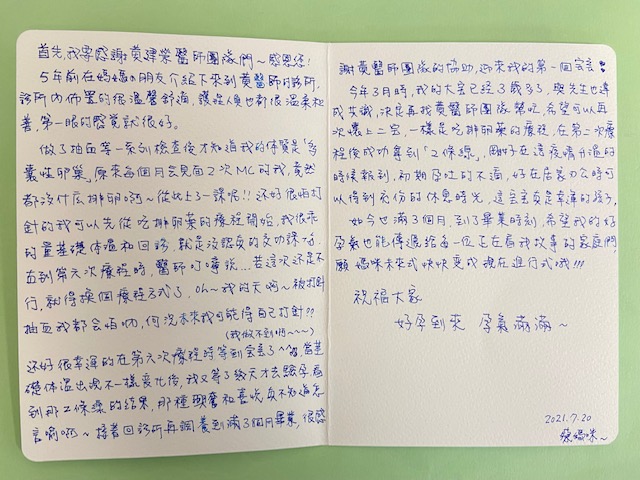 首先,我要感謝黃建榮醫師團隊們~感恩您!
5年前在媽媽的朋友介紹下來到黃醫師的診所,
診所內佈置的很溫馨舒適,護理人員也都很溫柔和
善,第一眼的感覺就很好。
做了抽血等一系列檢查後才知道我的體質是「多
囊性卵巢」原來每個月會見面2次MC的我,竟然
都沒什麼排卵啊~從此上了一課呢!!還好很怕打
針的我可以先從吃排卵藥的療程開始,我很乖
的量基礎體溫和回診,就是沒認真的交功課
直到第六次療程時,醫師叮嚀說...若這次還是不
行,就得換個療程方式了,Oh~我的天啊~被打針
抽血我都會怕呦,何況未來我可能得自己打針??
(我做不到啊~~~)
還好很幸運的在第六次療程時等到寶寶了^^當基
礎體溫出現不一樣變化後,我又等了幾天才去驗孕看
到那2條線的結果,那種興奮和喜悅真不知道怎
言喻啊~接著回診所再調養到滿3個月畢業,很感
謝黃醫師團隊的協助,迎來我的第一個寶寶
今年3月時,我的大寶已經3歲多了,與先生也達
成共識,決定再找黃醫師團隊幫忙,希望可以再
次懷上二寶,一樣是吃排卵藥的療程,在第二次療
程後成功等到「2條線」,剛好在這疫情升溫的
時候報到,初期孕吐的不適,好在居家辦公時可
以得到充份的休息時光,這寶寶真是幸運的孩子,
如今也滿3個月,到了畢業時刻,希望我的好
孕氣也能傳遞給每一位正在看我故事的家庭們
願 媽咪未來式快快變成現在進行式哦!!!
祝福大家
好孕到來 孕氣滿滿~
2021.7.20
媽咪~